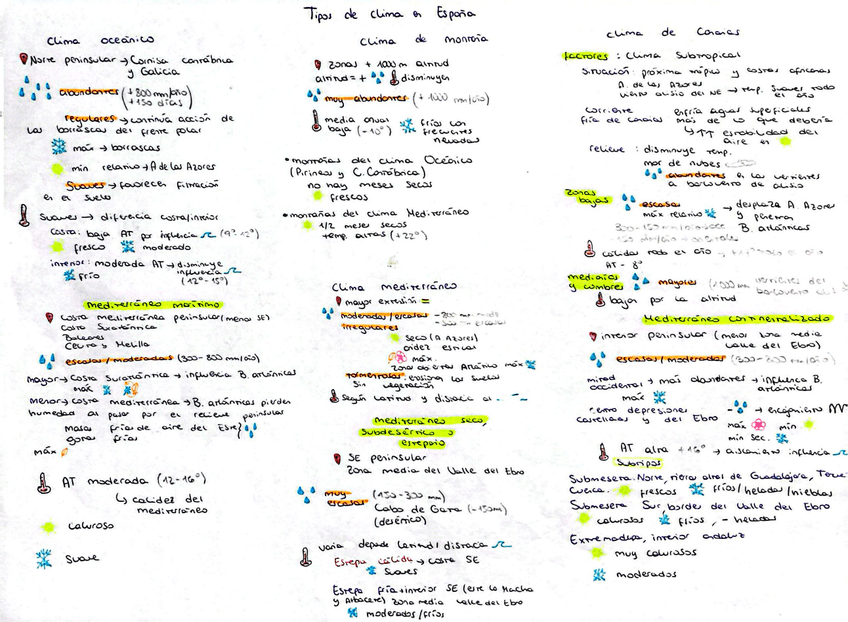 Tipos de clima en España
Clima oceánico
Norte peninsular → Cornisa cantábrica
y Galicia
abundantes (+800 mm/año)
+150 días)
regulares → continúa acción de
las borrascas del frente polar
máx → borrascas
mín relativo → A de las Azores
Suaves → favorecen filtración
en el suelo
Suaves → diferencia costa/interior
costa: baja AT por influencia (9º-12º)
fresco moderado
interior: moderada AT → disminuye
frío influencia
(12º-15º)
Mediterráneo marítimo
Costa mediterránea peninsular (menos SE)
Costa Suratlántica
Baleares
Ceuta y Melilla
escasas/moderadas (300-800 mm/año)
Mayor → costa Suratlántica → influencia B. atlánticas
máx
Menor → costa mediterránea → B. atlánticas pierden
humedad al pasar por el relieve peninsular
Masas frías de aire del Este
gotas frías
máx
AT moderada (12-16º)
↳ calidez del
mediterráneo
caluroso
Suave
Clima de montaña
zonas + 1000 m altitud
altitud = + disminuyen
muy abundantes (+1000 mm/año)
media anual fríos con
baja (-10º) frecuentes
nevadas
• montañas del clima Oceánico
(Pirineos y C. Cantábrica)
no hay meses secos
frescos
• montañas del clima Mediterráneo
1/2 meses secos
temp. altas (+22º)
Clima mediterráneo
mayor extensión =
moderadas/escasas
irregulares
seco (A Azores)
aridez estival
máx.
máx
tormentosas: erosiona los suelos
Sin vegetación
Según latitud y distancia al
Mediterráneo seco,
subdesértico o
estepario
SE peninsular
Zona media del Valle del Ebro
muy (150-300 mm)
escasas Cabo de Gata (-150ml)
(desértico)
varía depende latitud/distancia
Estepa cálida → costa SE
Suaves
Estepa fría → interior SE (este la Mancha
y Albacete) zona media Valle del Ebro
moderados/fríos
Clima de Canarias
factores: Clima Subtropical
Situación: próxima trópico y costas africanas
A. de las Azores
viento alisio del NE → temp. Suaves todo
el año
corriente enfría aguas superficiales
fría de Canarias más de lo que debería
↳ ↑↑ estabilidad del
aire en
relieve: disminuye temp.
mar de nubes
abundantes en las vertientes
a barlovento de alisio
Zonas escasas → desplaza A Azores
bajas máx relativo y penetran
B. atlánticas
cálidas todo el año
AT - 8º
medianías mayores
y cumbres
bajan por la altitud
Mediterráneo continentalizado
interior peninsular (menos zona media
valle del Ebro)
escasas/moderadas (300-800 mm/año)
mitad
occidental → más abundantes → influencia B.
máx atlánticas
centro depresiones
castellanas y del Ebro
máx mín
mín sec.
AT alta +16º → aislamiento influencia
Subtipos
Submeseta Norte, tierras altas de Guadalajara, Teruel
Cuenca. frescos fríos/heladas/nieblas
Submeseta Sur, bordes del Valle del Ebro
calurosos fríos, - heladas
Extremadura, interior andaluz
muy calurosos
moderados